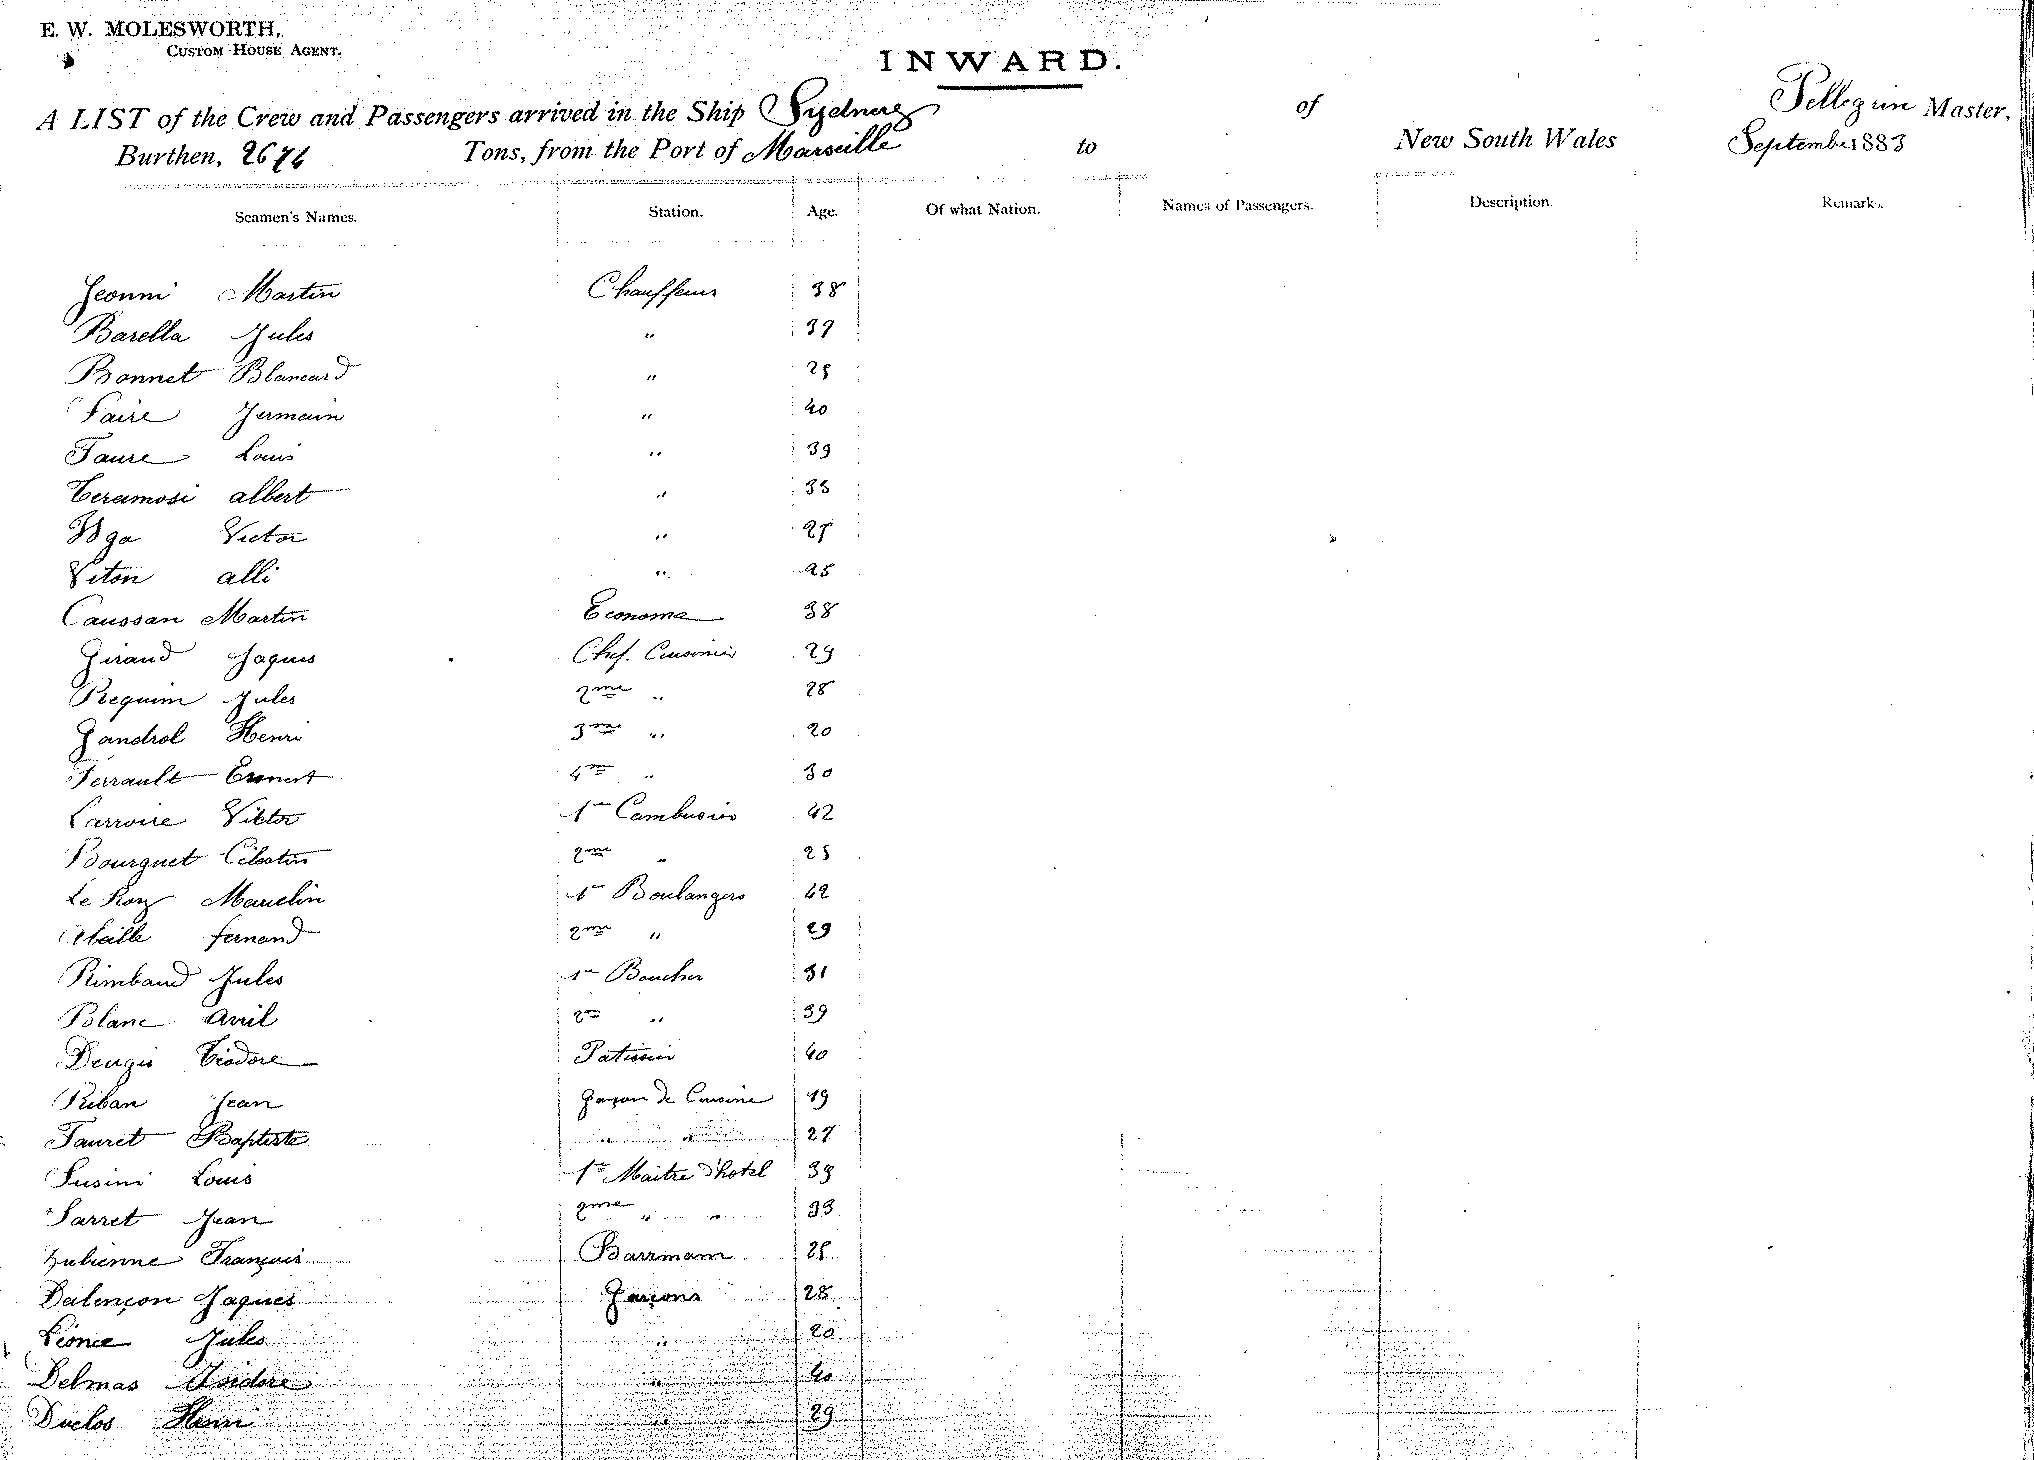 E. W. MOLESWORTH,
CUSTOM HOUSE AGENT.
INWARD.
A LIST of the Crew and Passengers arrived in the Ship Sydney of Pellegrin Master,
Burthen, 2674 Tons, from the Port of Marseille to New South Wales September 1883
Seamen's Names. Station. Age. Of what Nation. Names of Passengers. Description. Remarks.
Martin Chauffeur 38
Barella Jules " 39
Bonnet Blancard " 25
Faire Germain " 40
Faure Louis " 39
Teramosi albert " 33
Victor "
Viton alli " 25
Caussan Martin Econome 38
Giraud Jaques Chef. Cuisinier 29
Requim Jules 2me " 28
Gandrol Henri 3me " 20
Ferrault Ernest 4me " 30
Larroire Victor 1er Cambusier 42
Bourguet Célestin 2me " 25
Le Roy Marcelin 1er Boulangers 42
Abeille fernand 2me " 29
Rimbaud Jules 1er Boucher 31
Blanc Avril 2me " 39
Téodore Patissier 40
Riban Jean Garçon de Cuisine 19
Fauret Baptiste " " 27
Susini Louis 1er Maitre d'hotel 39
Sarret Jean 2me " " 33
Julienne François Barrmam 25
Dalençon Jaques Garçons 28
Léonce Jules " 20
Delmas Isidore " 40
Duclos Henri " 29